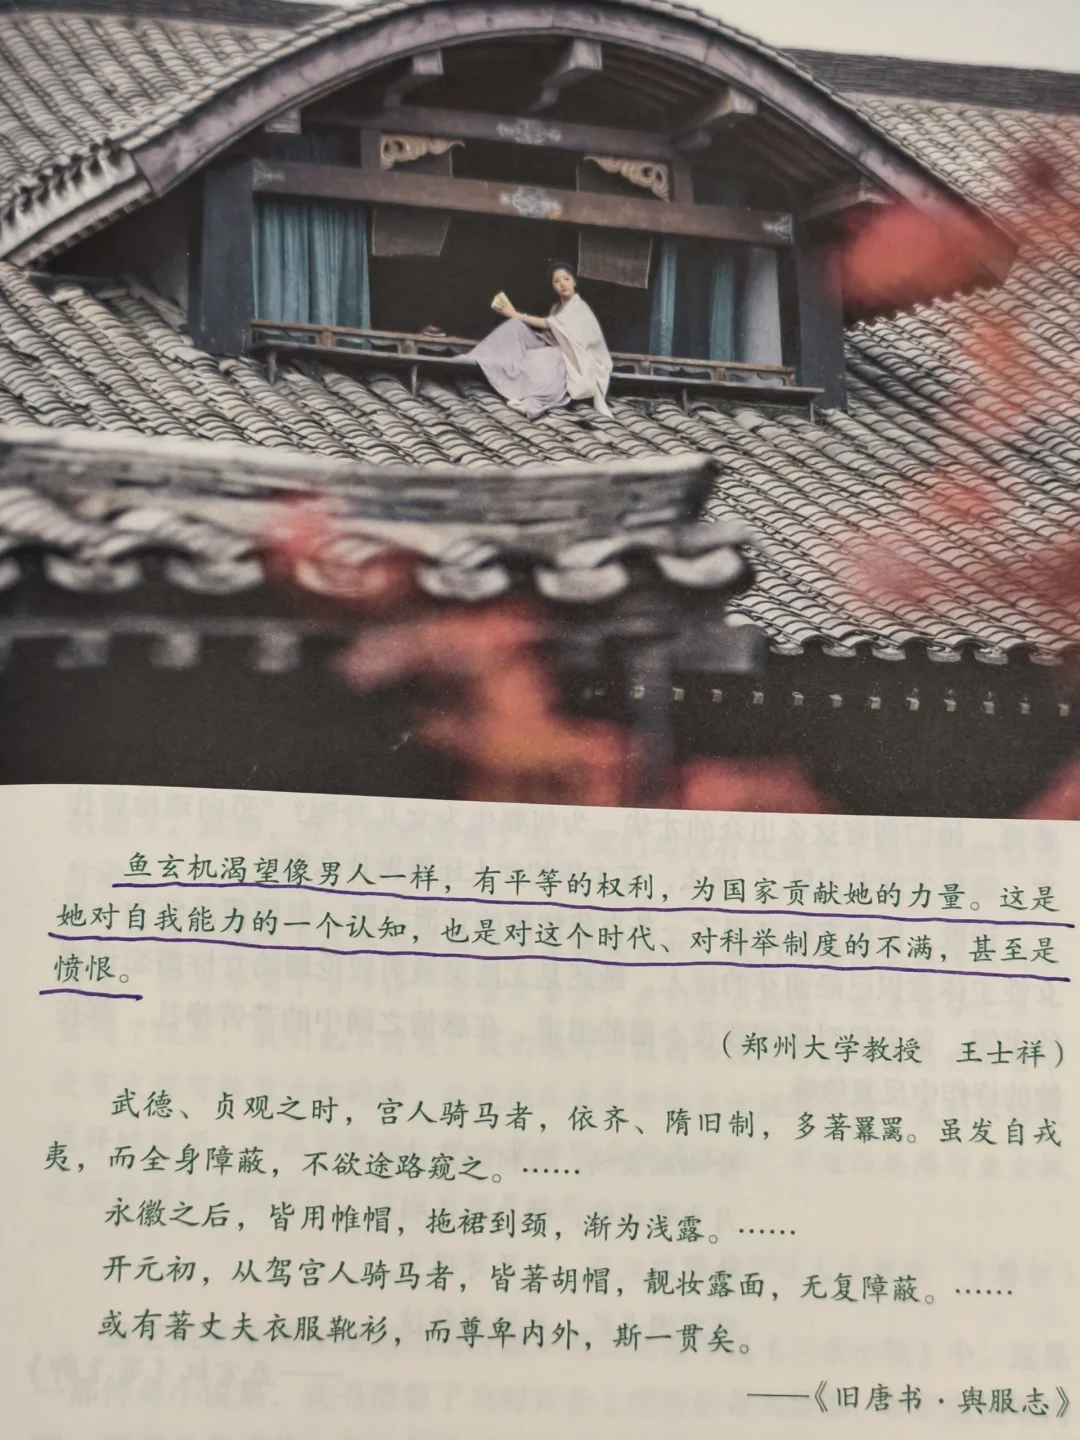 鱼玄机渴望像男人一样，有平等的权利，为国家贡献她的力量。这是
她对自我能力的一个认知，也是对这个时代、对科举制度的不满，甚至是
愤恨。
（郑州大学教授　王士祥）
武德、贞观之时，宫人骑马者，依齐、隋旧制，多著羃䍦。虽发自戎
夷，而全身障蔽，不欲途路窥之。……
永徽之后，皆用帷帽，拖裙到颈，渐为浅露。……
开元初，从驾宫人骑马者，皆著胡帽，靓妆露面，无复障蔽。……
或有著丈夫衣服靴衫，而尊卑内外，斯一贯矣。
——《旧唐书·舆服志》